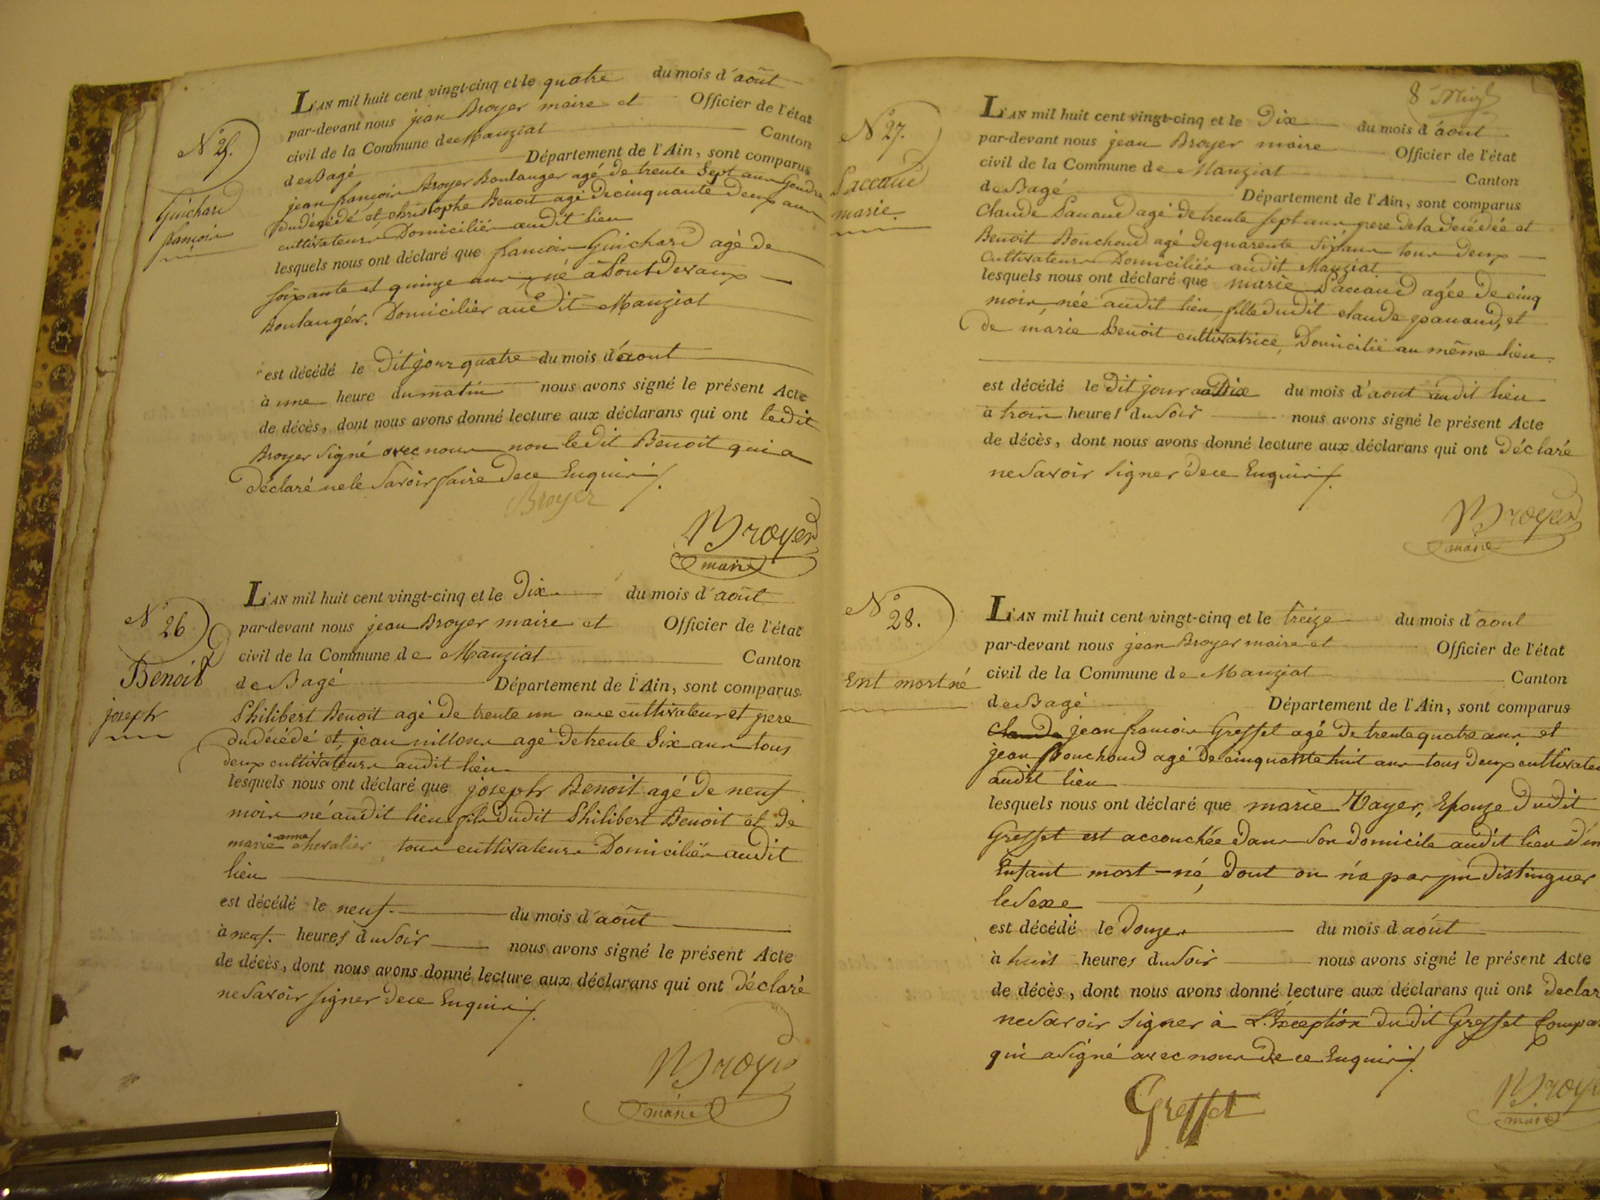 N° 25.
Guichard
françois
L'AN mil huit cent vingt-cinq et le quatre du mois d'août
par-devant nous jean Broyer maire et Officier de l'état
civil de la Commune de Manziat Canton
de Bagé Département de l'Ain, sont comparus
jean françois Broyer Boulanger agé de trente Sept ans Gendre
du décédé et christophe Benoit agé de cinquante deux ans
cultivateurs Domiciliés audit lieu
lesquels nous ont déclaré que françois Guichard agé de
soixante et quinze ans né à Pont Devaux
Boulanger. Domicilier audit Manziat
est décédé le Dit jour quatre du mois d'aout
à une heure du matin nous avons signé le présent Acte
de décès, dont nous avons donné lecture aux déclarans qui ont ledit
Broyer Signé avec nous non le Dit Benoit qui a
Déclaré ne le Savoir faire De ce Enquis ./.
Broyer
Broyer
maire
N° 26.
Benoit
joseph
L'AN mil huit cent vingt-cinq et le Dix du mois d'août
par-devant nous jean Broyer maire et Officier de l'état
civil de la Commune de Manziat Canton
de Bagé Département de l'Ain, sont comparus
Philibert Benoit agé de trente un ans cultivateur et pere
du décédé et jean nillons agé De trente Six ans tous
deux cultivateurs audit lieu
lesquels nous ont déclaré que joseph Benoit agé de neuf
mois né audit lieu fils dudit Philibert Benoit et de
marie anne chevalier, tous cultivateurs Domiciliés audit
lieu
est décédé le neuf du mois d'août
à neuf heures du soir nous avons signé le présent Acte
de décès, dont nous avons donné lecture aux déclarans qui ont déclaré
ne Savoir signer De ce Enquis ./.
Broyer
maire
8
N° 27.
Paccaud
marie
L'AN mil huit cent vingt-cinq et le Dix du mois d'août
par-devant nous jean Broyer maire Officier de l'état
civil de la Commune de Manziat Canton
de Bagé Département de l'Ain, sont comparus
Claude Pacaud agé de trente sept ans pere de la décédée et
Benoit Bouchoud agé de quarente Six ans tous Deux
Cultivateurs Domiciliés audit Manziat
lesquels nous ont déclaré que marie Paccaud agée de cinq
mois née audit lieu fille dudit claude pacaud, et
de marie Benoit cultivatrice, Domicilié au même lieu.
est décédé le dit jour Dix du mois d'aout audit lieu
à trois heures du Soir nous avons signé le présent Acte
de décès, dont nous avons donné lecture aux déclarans qui ont Déclaré
ne Savoir Signer de ce Enquis ./.
Broyer
maire
N° 28.
Ent mort né
L'AN mil huit cent vingt-cinq et le treize du mois d'aout
par-devant nous jean Broyer maire et Officier de l'état
civil de la Commune de Manziat Canton
de Bagé Département de l'Ain, sont comparus
jean françois Greffet agé de trente quatre ans et
jean Bouchoud agé De cinquante huit ans tous Deux cultivateu
audit lieu
lesquels nous ont déclaré que marie Hayer, Epouze Dudit
Greffet est accouchée dans Son domicile audit lieu d'un
Enfant mort-né, Dont on n'a pas pu Distinguer
le Sexe
est décédé le Douze du mois d'août
à huit heures du Soir nous avons signé le présent Acte
de décès, dont nous avons donné lecture aux déclarans qui ont declar
ne Savoir Signer à L'Exception du dit Greffet Compa
qui a Signé avec nous De ce Enquis ./.
Greffet
Broye
maire